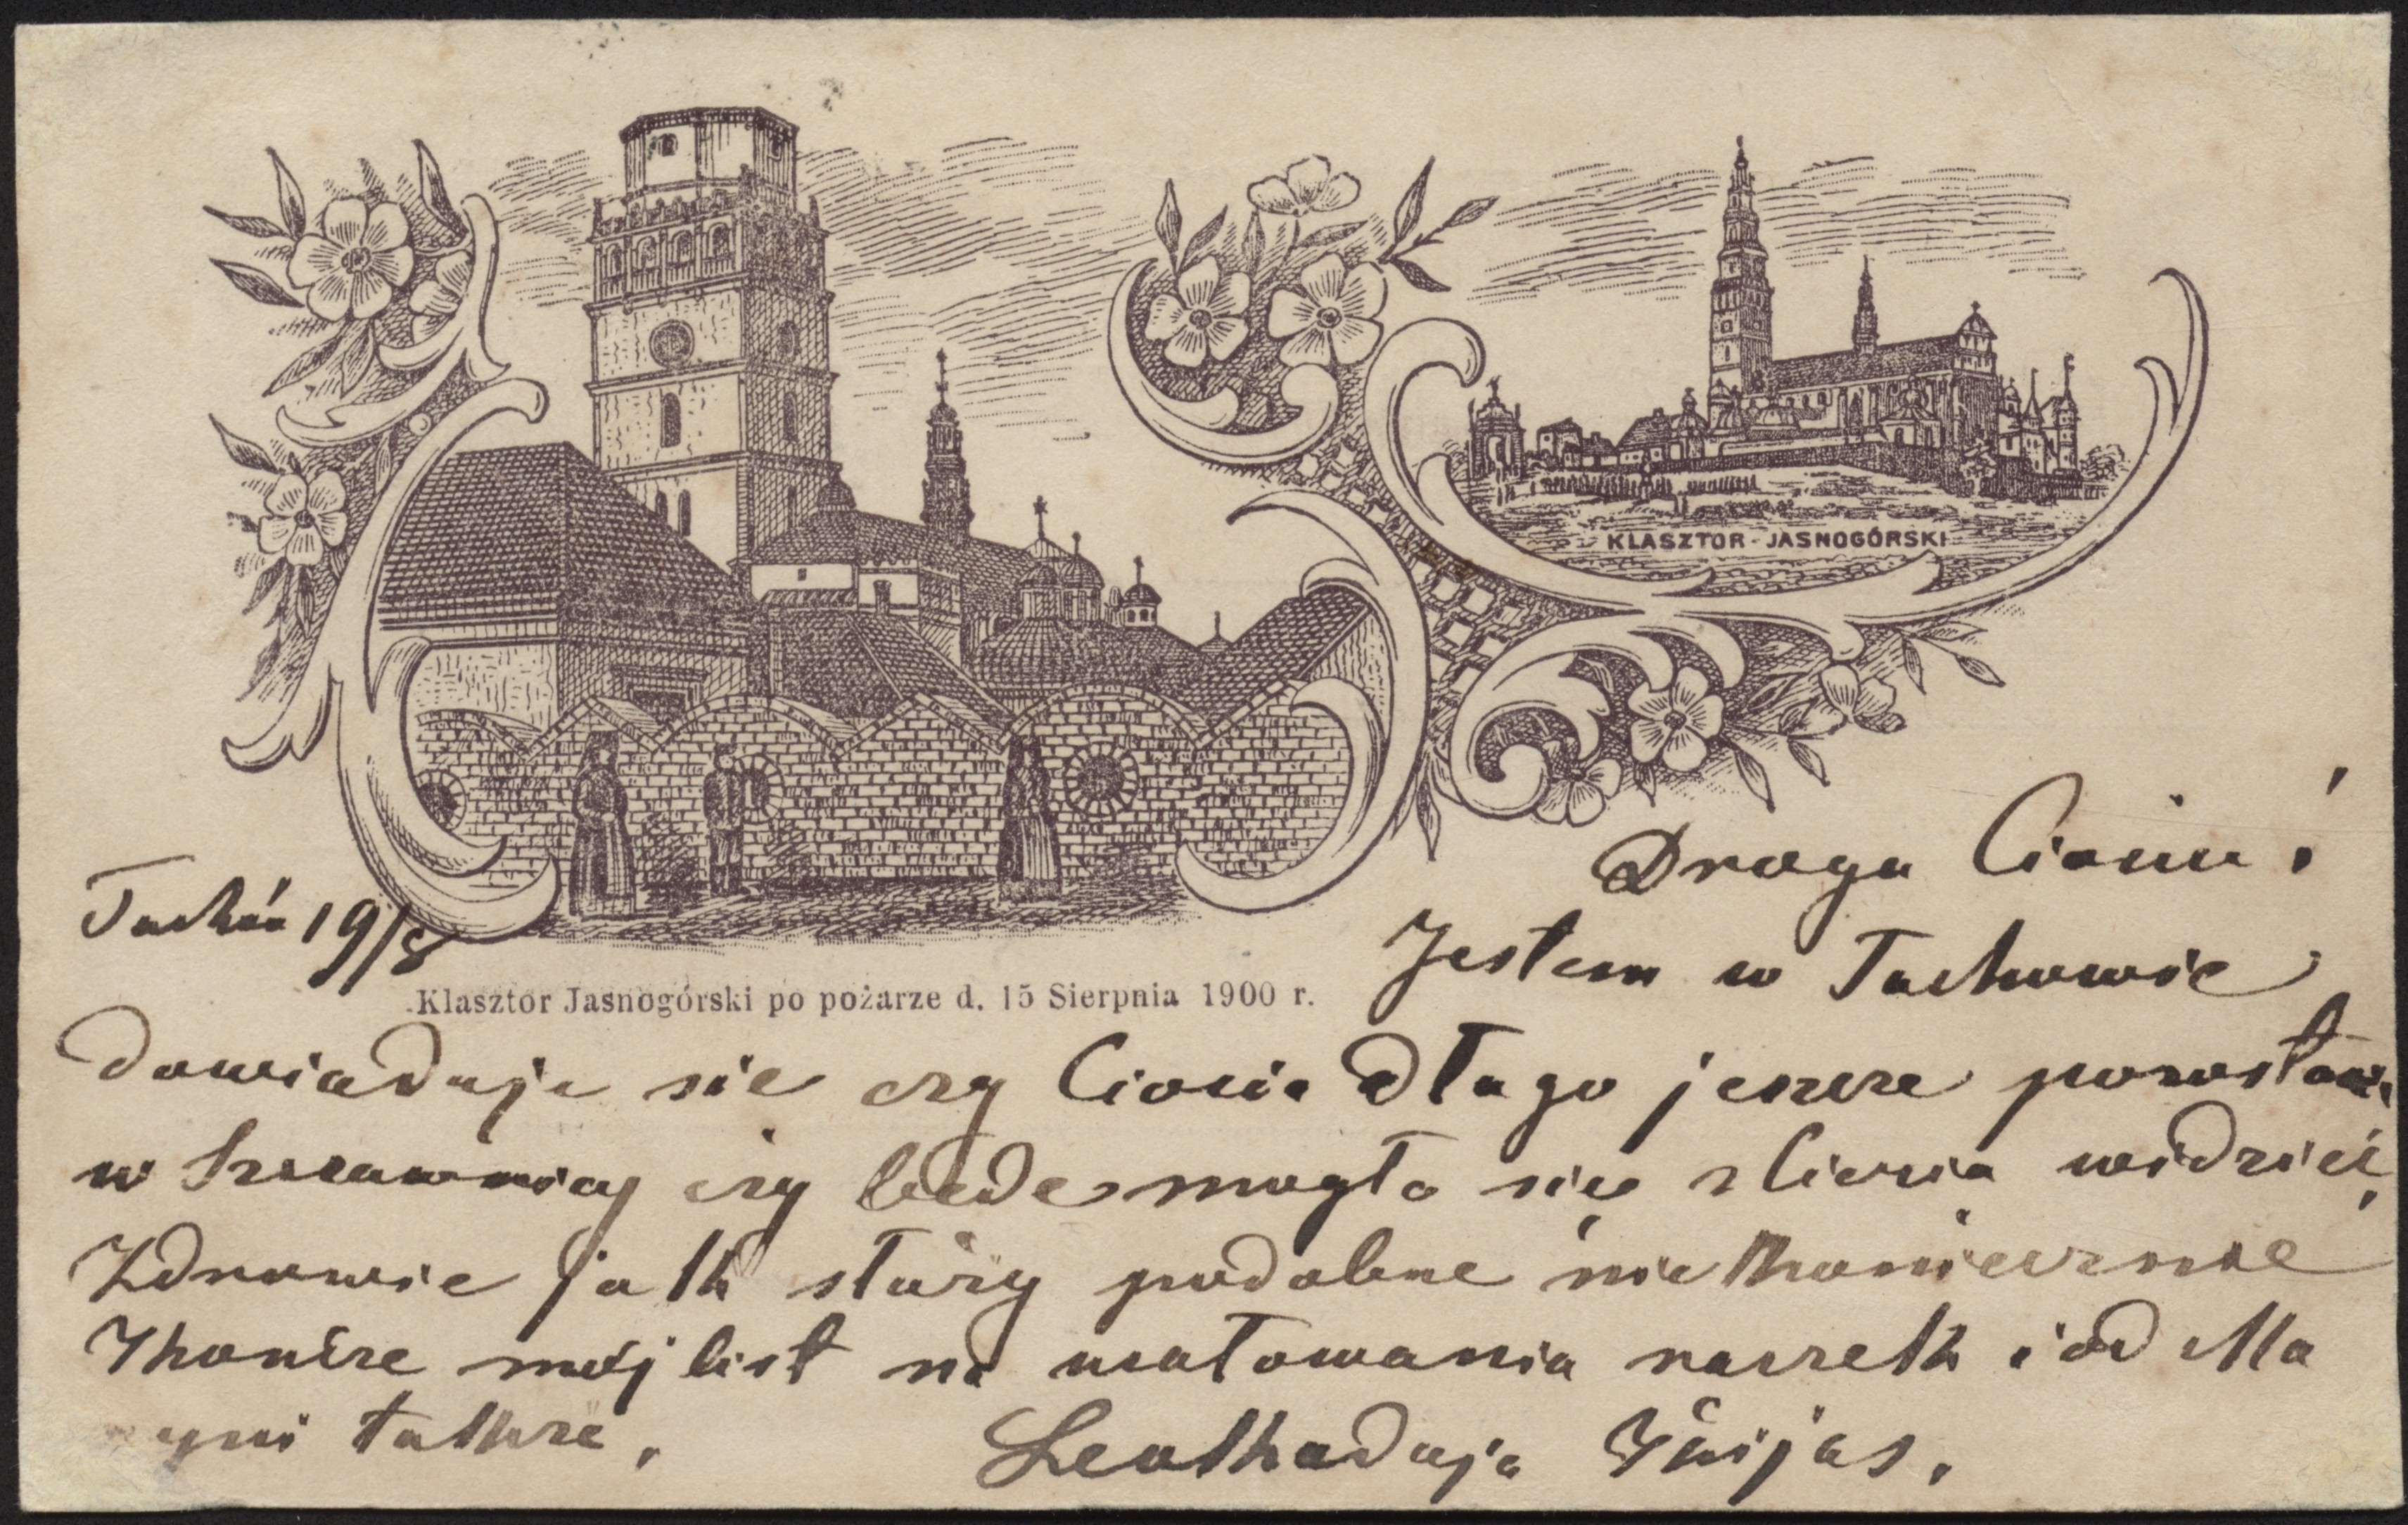 KLASZTOR-JASNOGÓRSKI
Klasztor Jasnogórski po pożarze d. 15 Sierpnia 1900 r.
19/8
Droga Ciociu!
Jestem w Tuchowie
dowiaduje sie czy Ciocia długo jeszcze pozostan
w Szczawnicy czy bede mogła się z Ciocia widzieć,
Zdrowie jak nie koniecznie
Kończe mój list na ucałowania raczek i od Ma
myni także.